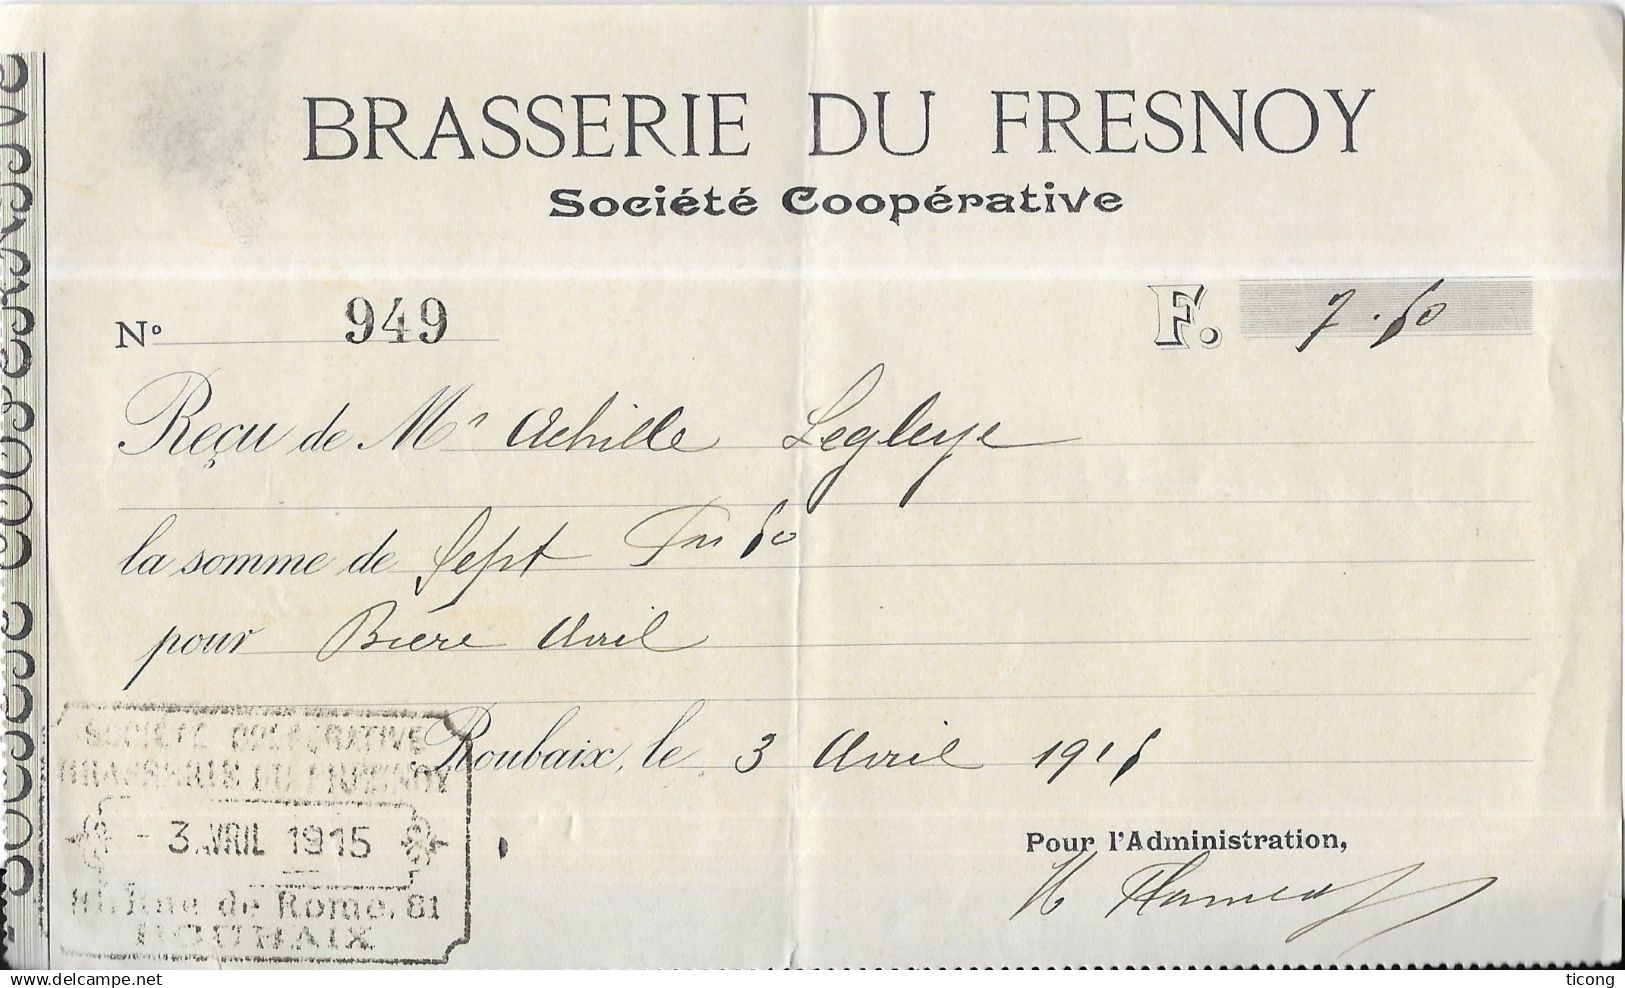 BRASSERIE DU FRESNOY
Société Coopérative
No 949
F. 7.50
Reçu de Mr Achille Legleye
la somme de Sept Frs 50
pour Bière Avril
Roubaix, le 3 Avril 1915
SOCIÉTÉ COOPÉRATIVE
BRASSERIE DU FRESNOY
- 3. AVRIL 1915
81. Rue de Rome. 81
ROUBAIX
Pour l'Administration,
delcampe.net
ticong